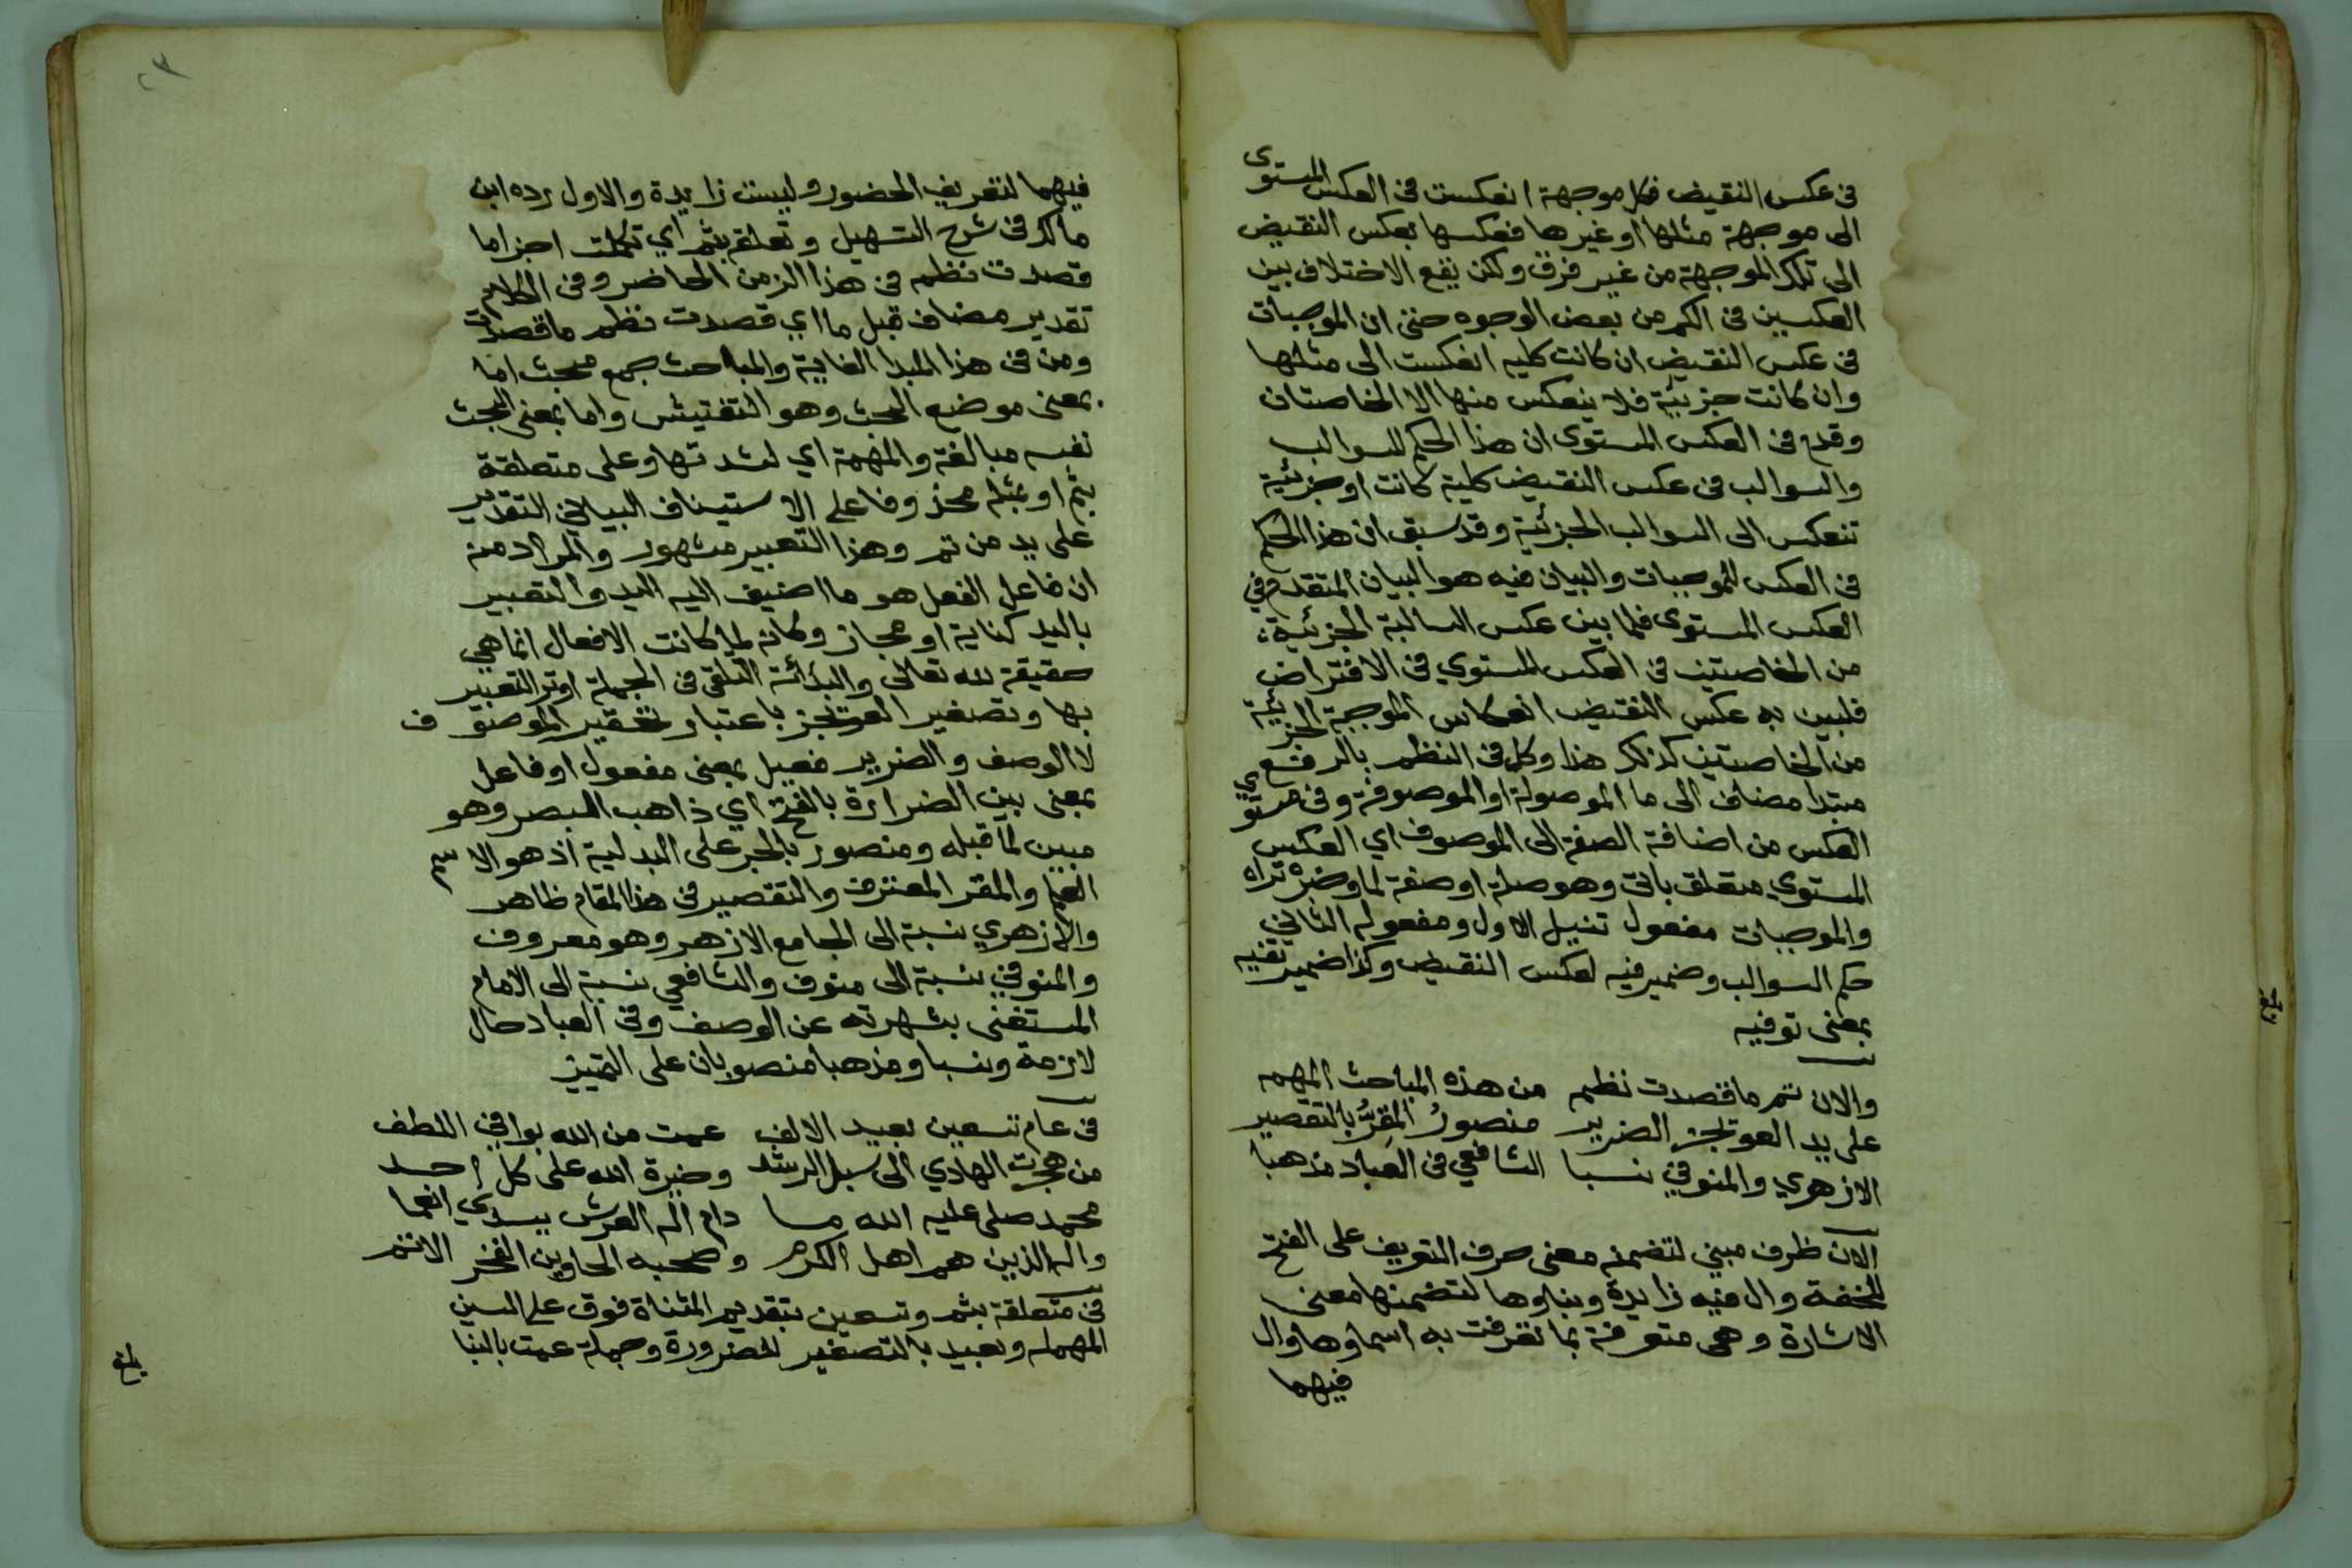 في عكس النقيض فكل موجهة انعكست في العكس المستوى
الى موجهة مثلها او غيرها فعكسها بعكس النقيض
الى تلك الموجهة من غير فرق ولكن يقع الاختلاف بين
العكسين في الكم من بعض الوجوه حتى ان الموجبات
في عكس النقيض ان كانت كليه انعكست الى مثلها
وان كانت جزئية فلا ينعكس منها الا الخاصتان
وقدم في العكس المستوى ان هذا الحكم للسوالب
والسوالب في عكس النقيض كلية كانت او جزئية
تنعكس الى السوالب الجزئية وقد سبق ان هذا الحكم
في العكس للموجبات والبيان فيه هو البيان المتقدم في
العكس المستوى فلما بين عكس السالبة الجزئية
من الخاصتين في العكس المستوي في الافتراض
فليبين به عكس النقيض انعكاس الموجبة الجزئية
من الخاصتين كذلك هذا وكل في النظم بالرفع
مبتدا مضاف الى ما الموصولة او الموصوفة وفي مستوي
العكس من اضافة الصفة الى الموصوف اي العكس
المستوي متعلق باتى وهو صلة او صفة لما وخبره تراه
والموجبات مفعول تنيل الاول ومفعوله الثاني
حكم السوالب وضمير فيه لعكس النقيض وكذا ضمير تفيه
بمعنى توفيه
والان تم ما قصدت نظمه من هذه المباحث المهمه
على يد العويجز الضرير منصورُ المُقِرُّ بالتقصير
الازهري والمنوفي نسبا الشافعي في العباد مذهبا
الان ظرف مبني لتضمنه معنى حرف التعريف على الفتح
للخفة وال فيه زايدة وبناوها لتضمنها معنى
الاشارة وهي متعرفة بما تعرفت به اسماوها وال
فيهما
فيهما لتعريف الحضور وليست زايدة والاول رده ابن
مالك في شرح التسهيل وتعلق بتم اي تكملت اجزا ما
قصدت نظمه في هذا الزمن الحاضر وفي الكلام
تقدير مضاف قبل ما اي قصدت نظم ما قصدت
ومن في هذا المبدا الغاية والمباحث جمع مبحث اما
بمعنى موضع البحث وهو التفتيش واما بمعنى البحث
نفسه مبالغة والمهمة اي لشدتها وعلى متعلقة
بتم او بمثله محذوفا على الاستيناف البياني التقدير
على يد من تم وهذا التعبير مشهور والمراد منه
ان فاعل الفعل هو ما اضيف اليه اليد والتعبير
باليد كناية او مجاز وكانه لما كانت الافعال انما هي
حقيقة لله تعالى والبد التلقي في الجملة اوثر التعبير
بها وتصغير العويجز باعتبار تحقير الموصوف
لا الوصف والضرير فعيل بمعنى مفعول او فاعل
بمعنى بين الضرارة بالفتح اي ذاهب البصر وهو
مبين لما قبله ومنصور بالجر على البدلية اذ هو الاسم
العلم والمقر المعترف والتقصير في هذا المقام ظاهر
والازهري نسبة الى الجامع الازهر وهو معروف
والمنوفي نسبة الى منوف والشافعي نسبة الى الامام
المستغنى بشهرته عن الوصف وفي العباد حال
لازمة ونسبا ومذهبا منصوبان على التمييز
في عام تسعين بعيد الالف عمت من الله بوافي اللطف
من هجرت الهادي الى سبل الرشد وخيرة الله على كل احد
محمد صلى عليه الله ما دام اله العرش يسدي انعما
واله الذين هم اهل الكرم وصحبه الحاوين الفخر الاتم
في متعلقة بتم وتسعين بتقديم المثناة فوق على السين
المهمله وبعيد بالتصغير للضرورة وجملة عمت بالبنا
بلغ